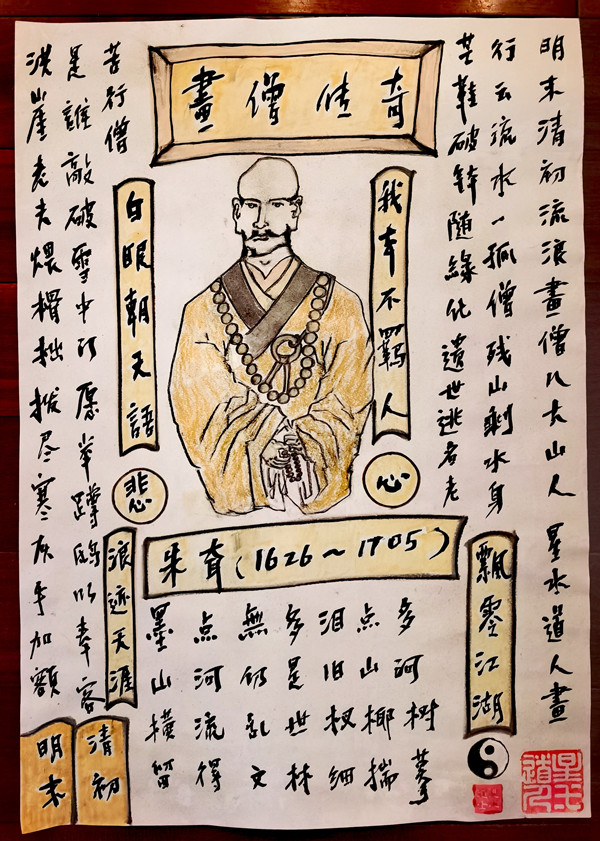 畫僧传奇
明末清初流浪畫僧八大山人 星水道人畫
行云流水一孤僧残山剩水身
芒鞋破钵随緣化遗世逃名老
我本不羁人
白眼朝天語
心
悲
苦行僧
是誰敲破雪中门愿举蹲鸱以奉客
洪崖老夫煨榾柮拨尽寒灰手加额
朱耷(1626~1705)
飄零江湖
浪迹天涯
墨点無多泪点多
山河仍是旧山河
横流乱世杈椰树
留得文林细揣摹
明末
清初
星水道人